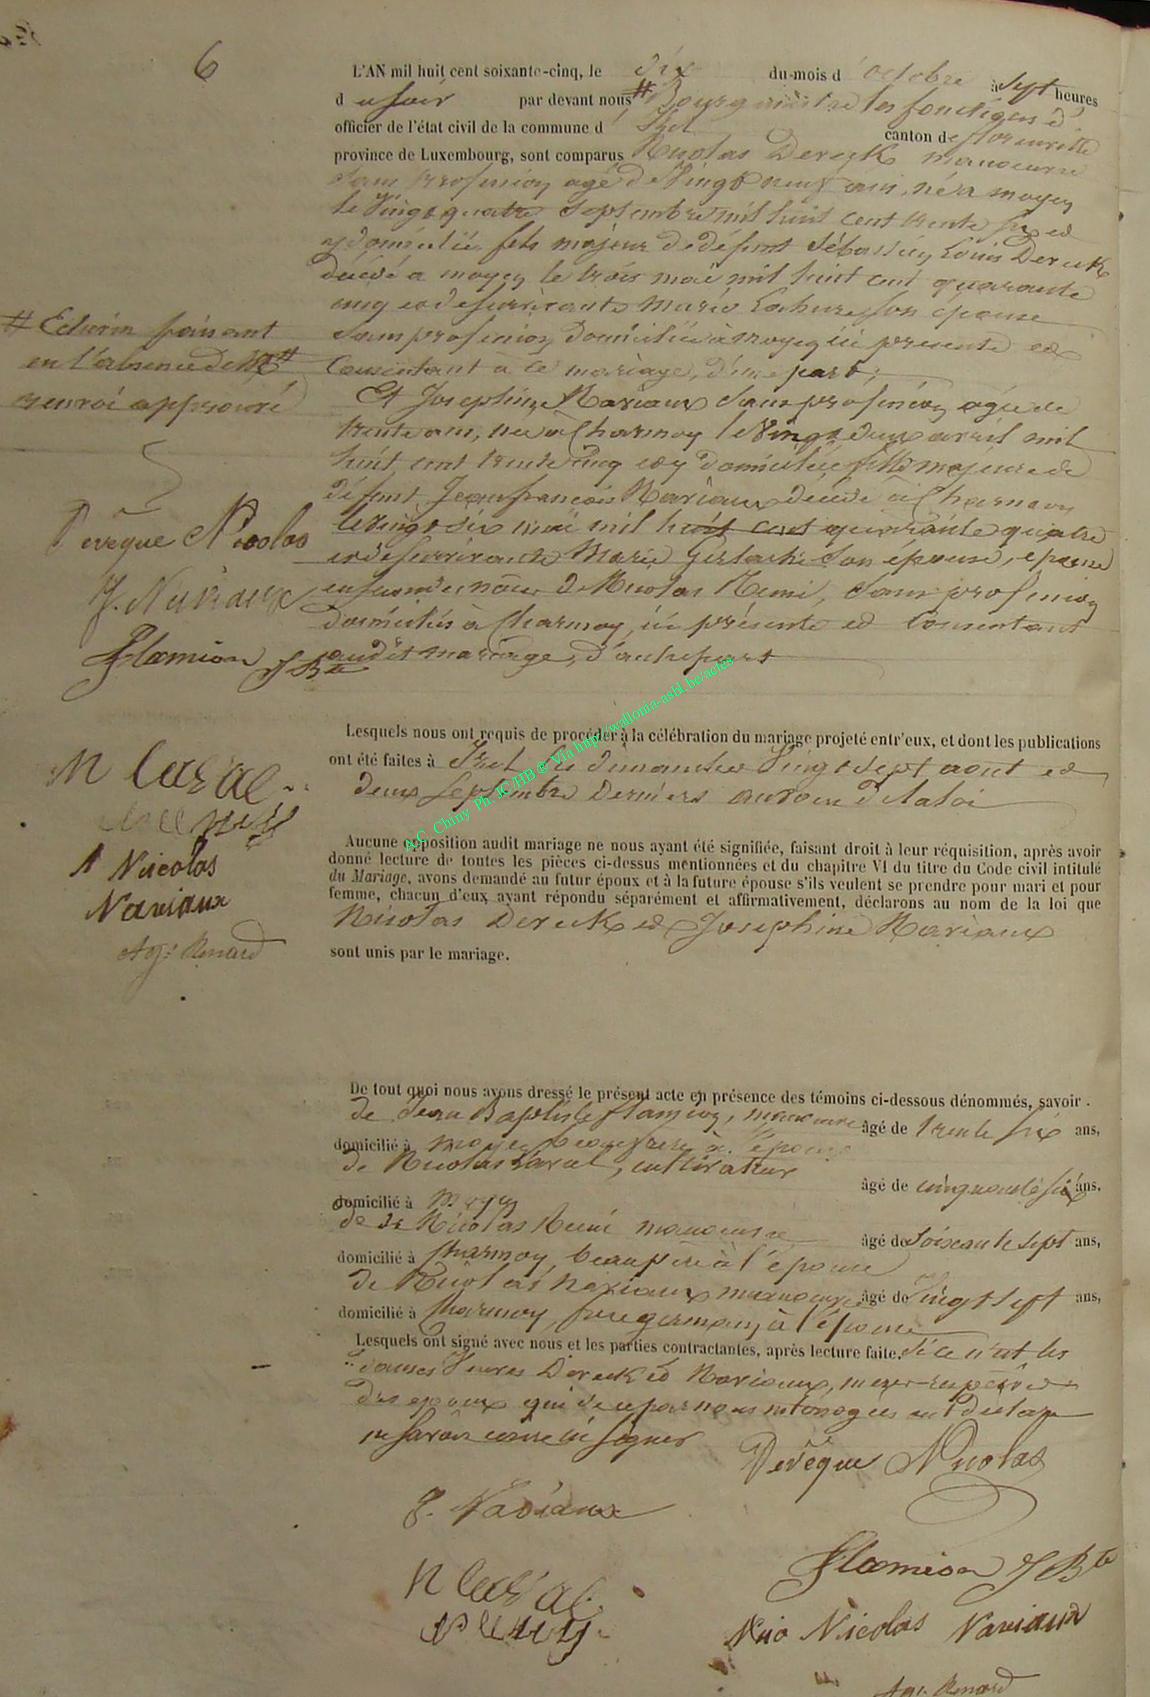 6
L'AN mil huit cent soixante-cinq, le dix du mois d'octobre à sept heures
du soir par devant nous # Bourgmestre les fonctions d'
officier de l'état civil de la commune d' Izel canton de florenville
province de Luxembourg, sont comparus Nicolas Dereck manoeuvre
sans profession agé de Vingt neuf ans, né à moyen
le Vingt quatre Septembre mil huit cent trente six et
y domicilié fils majeur de défunt Sébastien Louis Dereck
décédé a moyen le trois mai mil huit cent quarante
cinq et de survivante Marie Lahure son épouse
sans profession domiciliée à moyen ici présente et
Consentant à ce mariage, d'une part;
# Echevin faisant
en l'absence de
renvoi approuvé
Et Josephine Nariaux sans profession agée de
trente ans, née à Charmoy le Vingt deux avril mil
huit cent trente cinq et y domiciliée fille majeure de
défunt Jean françois Nariaux décédé à Charmoy
le vingt six mai mil huit cent quarante quatre
et de survivante Marie Gerlache son épouse, épouse
en secondes noces de Nicolas Remi, sans profession
domiciliés à Charmoy, ici présente et Consentant
audit mariage, d'autre part
Devêque Nicolas
J. Nariaux
Flamion J Bte
Lesquels nous ont requis de procéder à la célébration du mariage projeté entr'eux, et dont les publications
ont été faites à Izel les dimanches Vingt sept aout et
deux Septembre Derniers au voeu de la loi
N Laval
Nicolas
Nariaux
Aug: Renard
Aucune opposition audit mariage ne nous ayant été signifiée, faisant droit à leur réquisition, après avoir
donné lecture de toutes les pièces ci-dessus mentionnées et du chapitre VI du titre du Code civil intitulé
du Mariage, avons demandé au futur époux et à la future épouse s'ils veulent se prendre pour mari et pour
femme, chacun d'eux ayant répondu séparément et affirmativement, déclarons au nom de la loi que
Nicolas Dereck et Josephine Nariaux
sont unis par le mariage.
De tout quoi nous avons dressé le présent acte en présence des témoins ci-dessous dénommés, savoir.
de Jean Baptiste flamion, manoeuvre âgé de trente six ans,
domicilié à moyen beau frère à l'époux
de Nicolas Laval, cultivateur âgé de cinquante six ans,
domicilié à Moyen
de Nicolas Remi manoeuvre âgé de Soixante sept ans,
domicilié à Charmoy, beau père à l'épouse
de Nicolas Nariaux manoeuvre âgé de Vingt sept ans,
domicilié à Charmoy, frère germain à l'épouse
Lesquels ont signé avec nous et les parties contractantes, après lecture faite. Si ce n'est les
Veuves Dereck et Nariaux, mères respectives
des époux qui de ce par nous interrogées ont déclaré
ne savoir écrire ni signer
Devêque Nicolas
J. Nariaux
Flamion J Bte
N Laval
Nicolas Nariaux
Aug. Renard
A.C. Chiny Ph. JC.HB © Via http://wallonia-asbl.be/actes